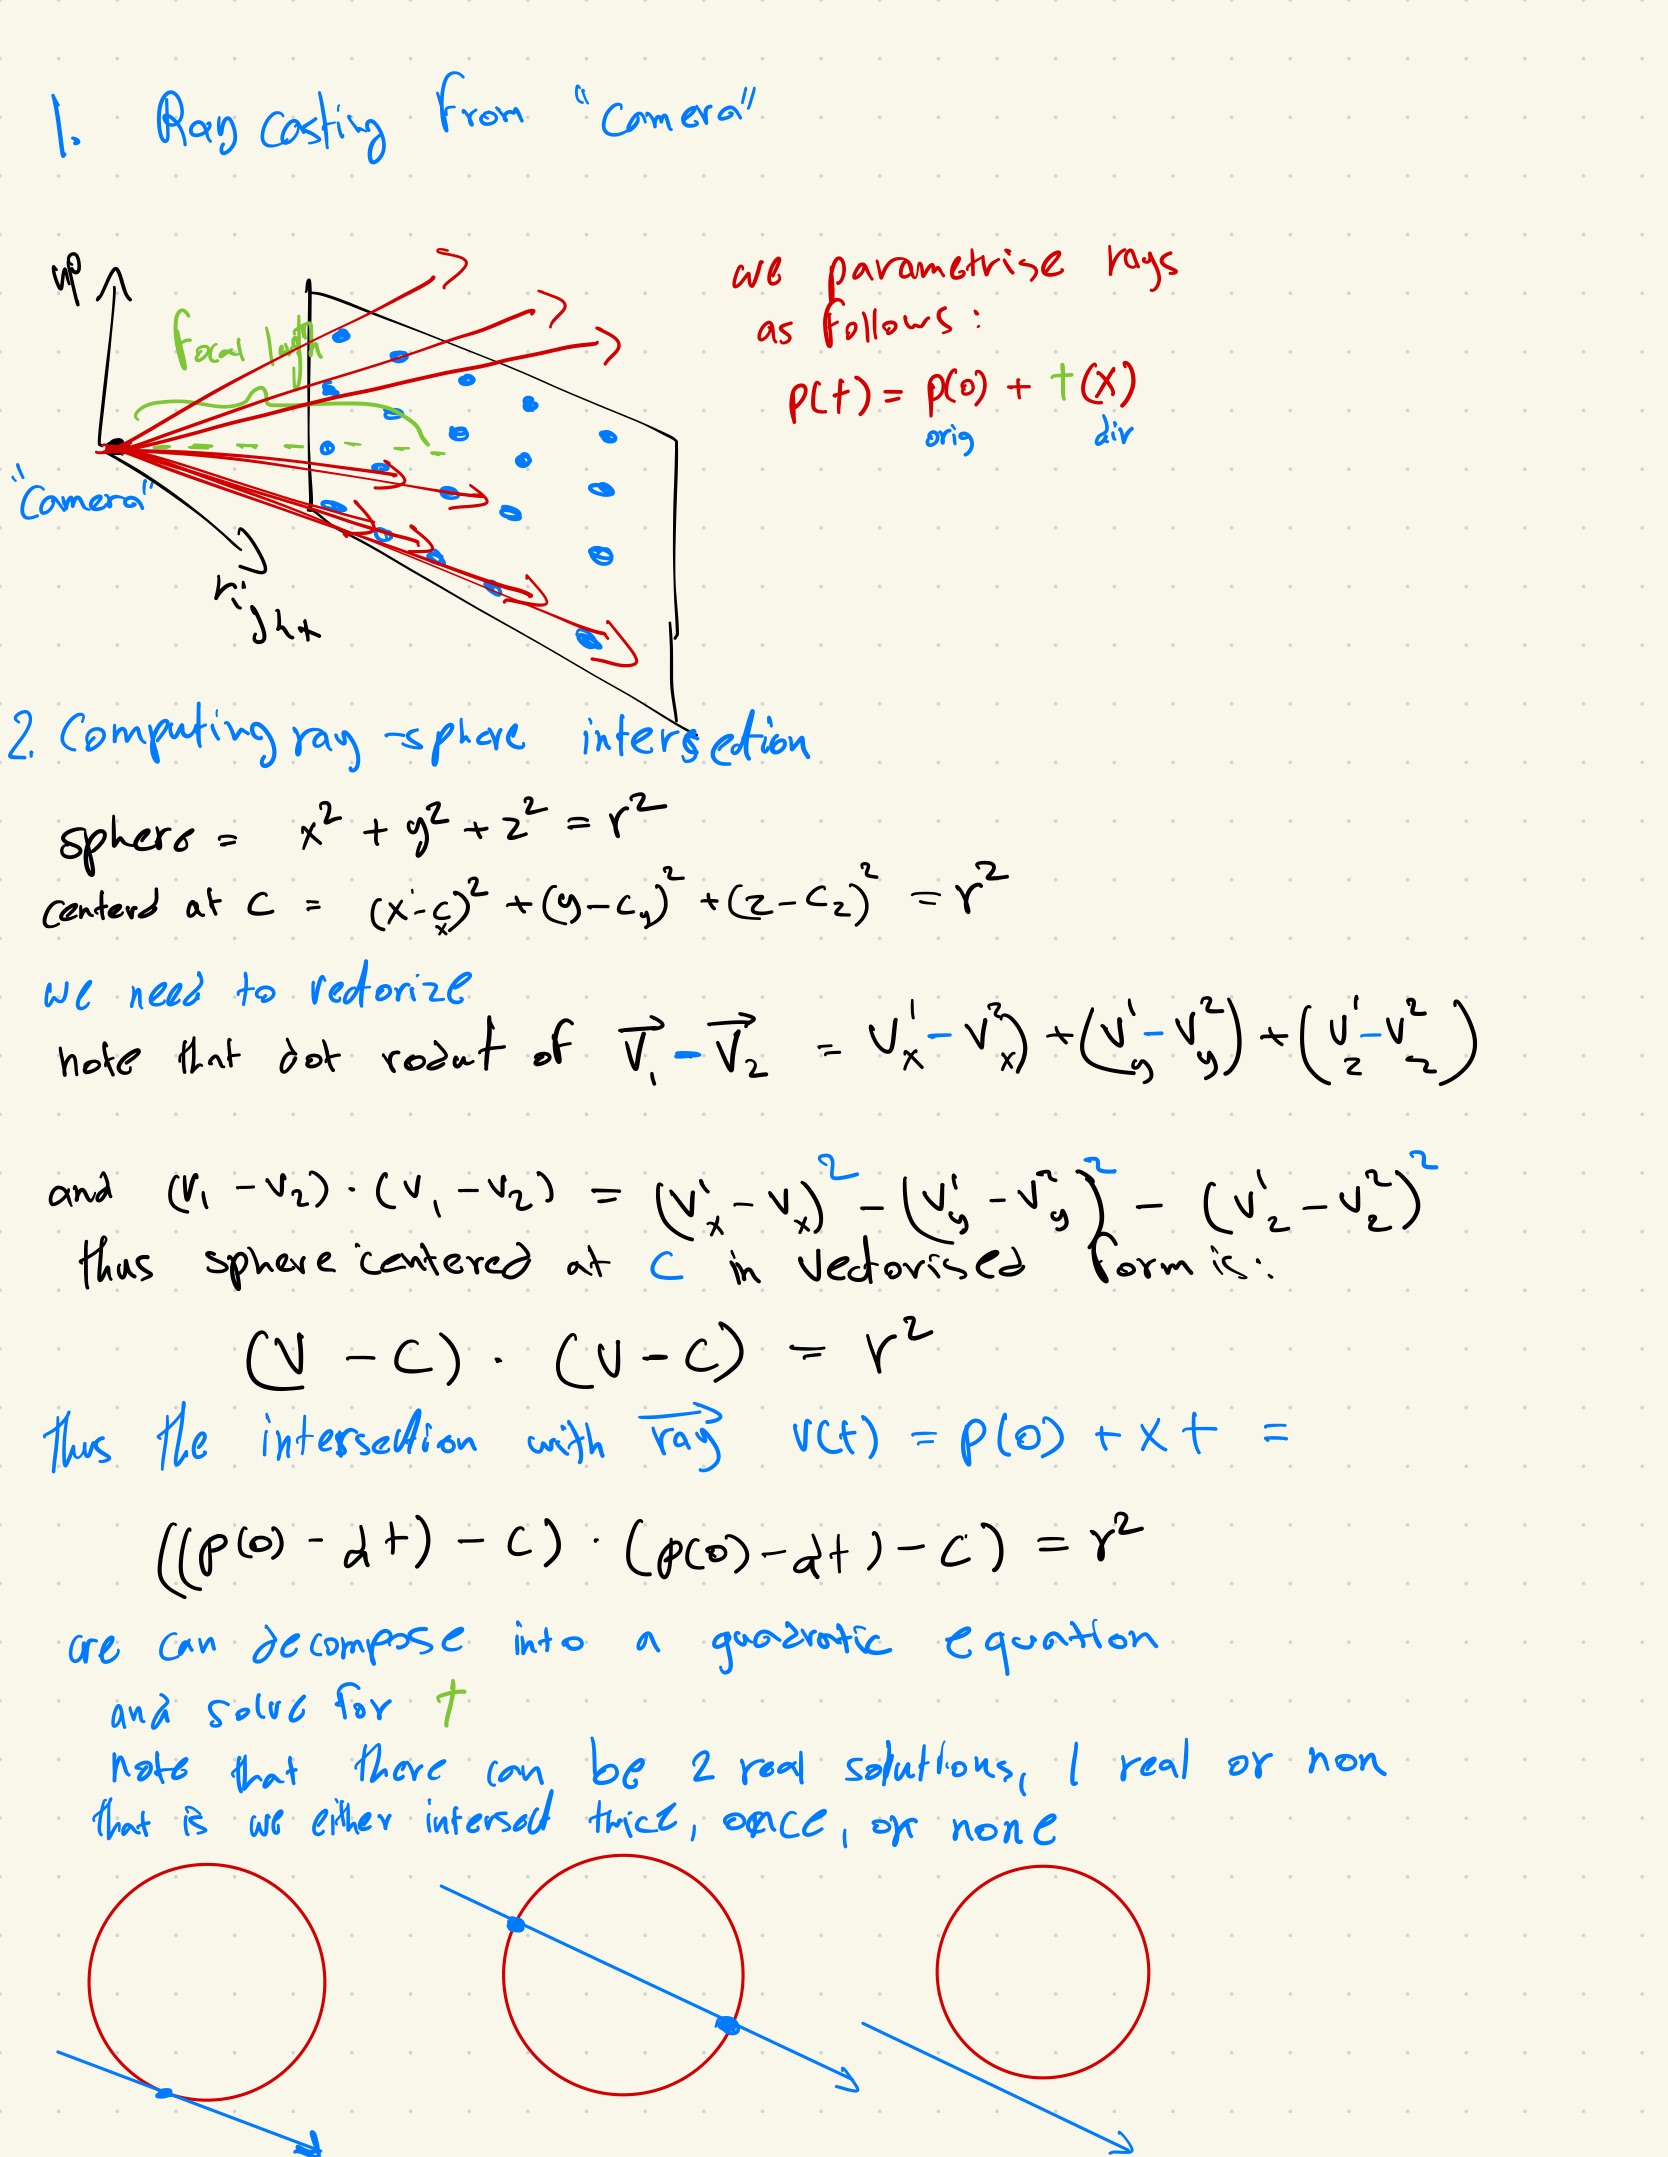 1. Ray casting from "Camera"
up
focal length
"Camera"
right
we parametrise rays
as follows:
p(t) = p(0) + t(x)
orig dir
2. Computing ray-sphere intersection
sphere = x² + y² + z² = r²
centerd at C = (x - c_x)² + (y - c_y)² + (z - c_z)² = r²
we need to vectorize
note that dot roduct of V⃗₁ - V⃗₂ = V¹_x - V²_x) + (V¹_y - V²_y) + (V¹_z - V²_z)
and (V₁ - V₂) · (V₁ - V₂) = (V¹_x - V_x)² - (V¹_y - V²_y)² - (V¹_z - V²_z)²
thus sphere centered at C in vectorised form is:
(V - C) · (V - C) = r²
thus the intersection with ray⃗ V(t) = p(0) + x t =
((p(0) - dt) - C) · (p(0) - dt) - C) = r²
are can decompose into a quadratic equation
and solve for t
note that there can be 2 real solutions, 1 real or non
that is we either intersect twice, once, or none